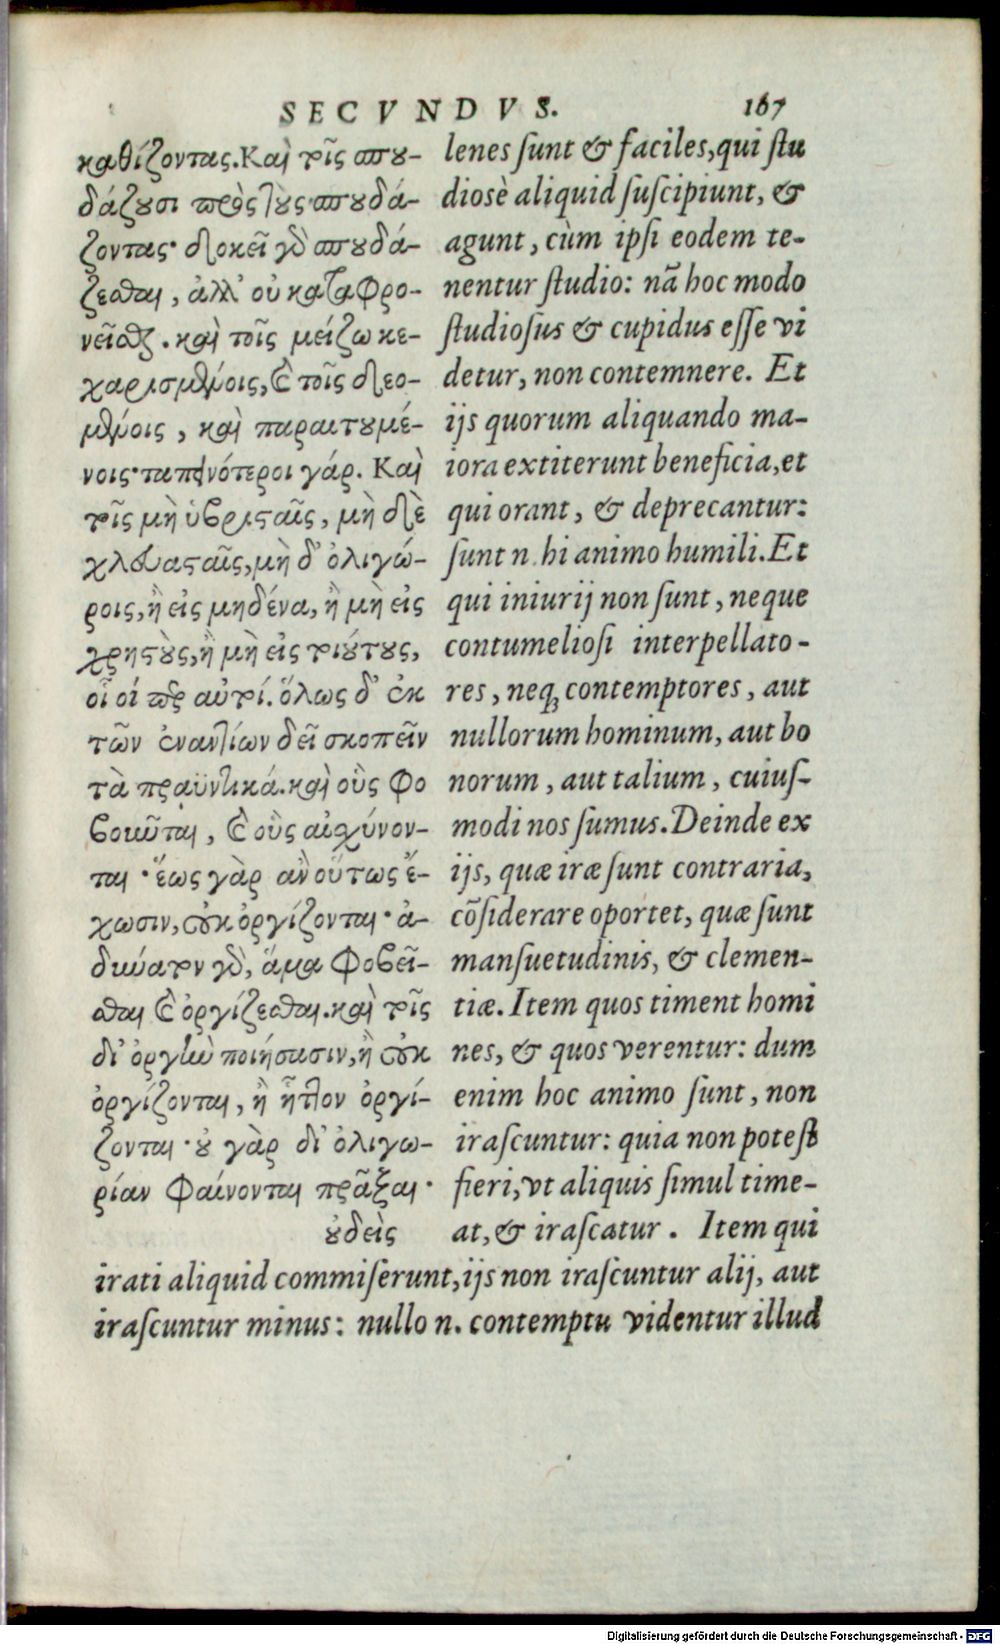 SECVNDVS.
167
καθίζοντας. Καὶ τοῖς σπου-
δάζουσι πρὸς τοὺς σπουδά-
ζοντας· δοκεῖ γὰρ σπουδά-
ζεσθαι, ἀλλ' οὐ καταφρο-
νεῖσθαι. καὶ τοῖς μείζω κε-
χαρισμένοις, καὶ τοῖς δεο-
μένοις, καὶ παραιτουμέ-
νοις· ταπεινότεροι γάρ. Καὶ
τοῖς μὴ ὑβρισταῖς, μὴ δὲ
χλευασταῖς, μὴ δ' ὀλιγώ-
ροις, ἢ εἰς μηδένα, ἢ μὴ εἰς
χρηστοὺς, ἢ μὴ εἰς τοιούτους,
οἷοί περ αὐτοί. ὅλως δ' ἐκ
τῶν ἐναντίων δεῖ σκοπεῖν
τὰ πραϋντικά. καὶ οὓς φο
βοιῶται, καὶ οὓς αἰσχύνον-
ται· ἕως γὰρ ἂν οὕτως ἔ-
χωσιν, οὐκ ὀργίζονται· ἀ-
δύνατον γὰρ, ἅμα φοβεῖ-
σθαι καὶ ὀργίζεσθαι. καὶ τοῖς
δι' ὀργὴν ποιήσασιν, ἢ οὐκ
ὀργίζονται, ἢ ἧττον ὀργί-
ζονται· οὐ γὰρ δι' ὀλιγω-
ρίαν φαίνονται πρᾶξαι·
οὐδεὶς
lenes sunt & faciles, qui stu
diosè aliquid suscipiunt, &
agunt, cùm ipsi eodem te-
nentur studio: nã hoc modo
studiosus & cupidus esse vi
detur, non contemnere. Et
ijs quorum aliquando ma-
iora extiterunt beneficia, et
qui orant, & deprecantur:
sunt n. hi animo humili. Et
qui iniurij non sunt, neque
contumeliosi interpellato-
res, neq; contemptores, aut
nullorum hominum, aut bo
norum, aut talium, cuius-
modi nos sumus. Deinde ex
ijs, quæ iræ sunt contraria,
cõsiderare oportet, quæ sunt
mansuetudinis, & clemen-
tiæ. Item quos timent homi
nes, & quos verentur: dum
enim hoc animo sunt, non
irascuntur: quia non potest
fieri, vt aliquis simul time-
at, & irascatur. Item qui
irati aliquid commiserunt, ijs non irascuntur alij, aut
irascuntur minus: nullo n. contemptu videntur illud
Digitalisierung gefördert durch die Deutsche Forschungsgemeinschaft - DFG